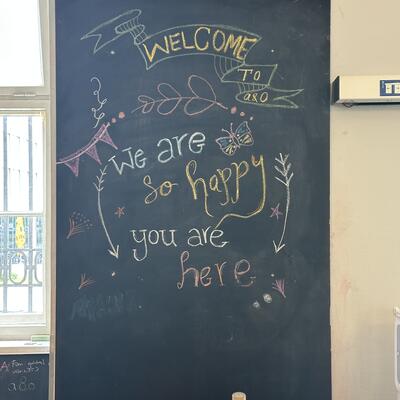 WELCOME
TO
a80
We are
so happy
you are
here
a80